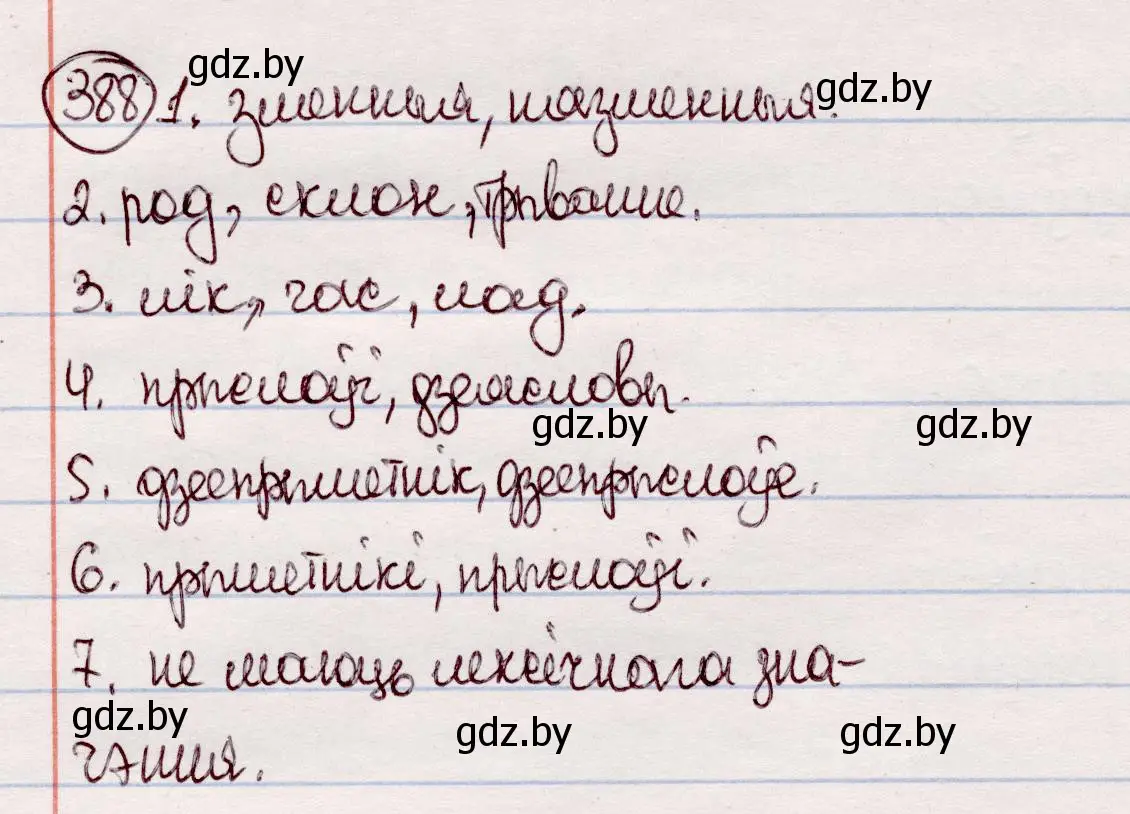 gdz.by
gdz.by
388 1. зменныя, нязменныя.
2. род, склон, трыванне.
3. лік, час, лад.
4. прыслоўі, дзеясловы.
gdz.by gdz.by
5. дзеепрыметнік, дзеепрыслоўе.
6. прыметнікі, прыслоўі.
7. не маюць лексічнага зна-
gdz.by gdz.by gdz.by
чэння.